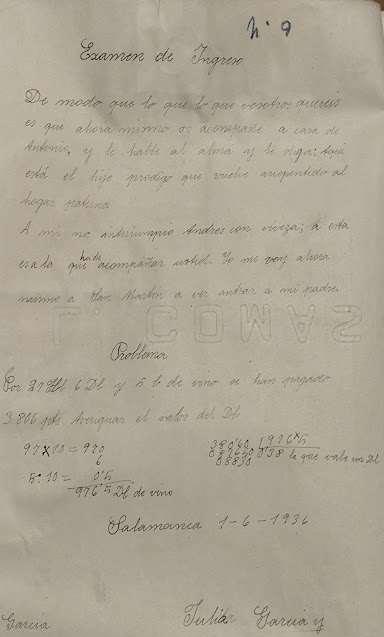 Nº 9
Examen de Ingreso
De modo que lo que lo que vosotros quereis
es que ahora mismo os acompañe a casa de
Antonio, y le hable al alma y le diga: Aquí
está el hijo prodigo que vuelve arrepentido al
hogar paterno.
A mi no interrumpio Andres con viveza; a esta
es a la que ha de acompañar usted. Yo me voy ahora
mismo a San Martin a ver entrar a mi padre.
L. COMAS
Problema
Por 97 Hl 6 Dl y 5 l de vino se han pagado
3.806 pts. Averiguar el valor del Dl
97 x 10 = 970
6
5 : 10 = 0'5
976'5 Dl de vino
lo que vale un Dl
Salamanca 1-6-1936
Garcia
Julián Garcia y